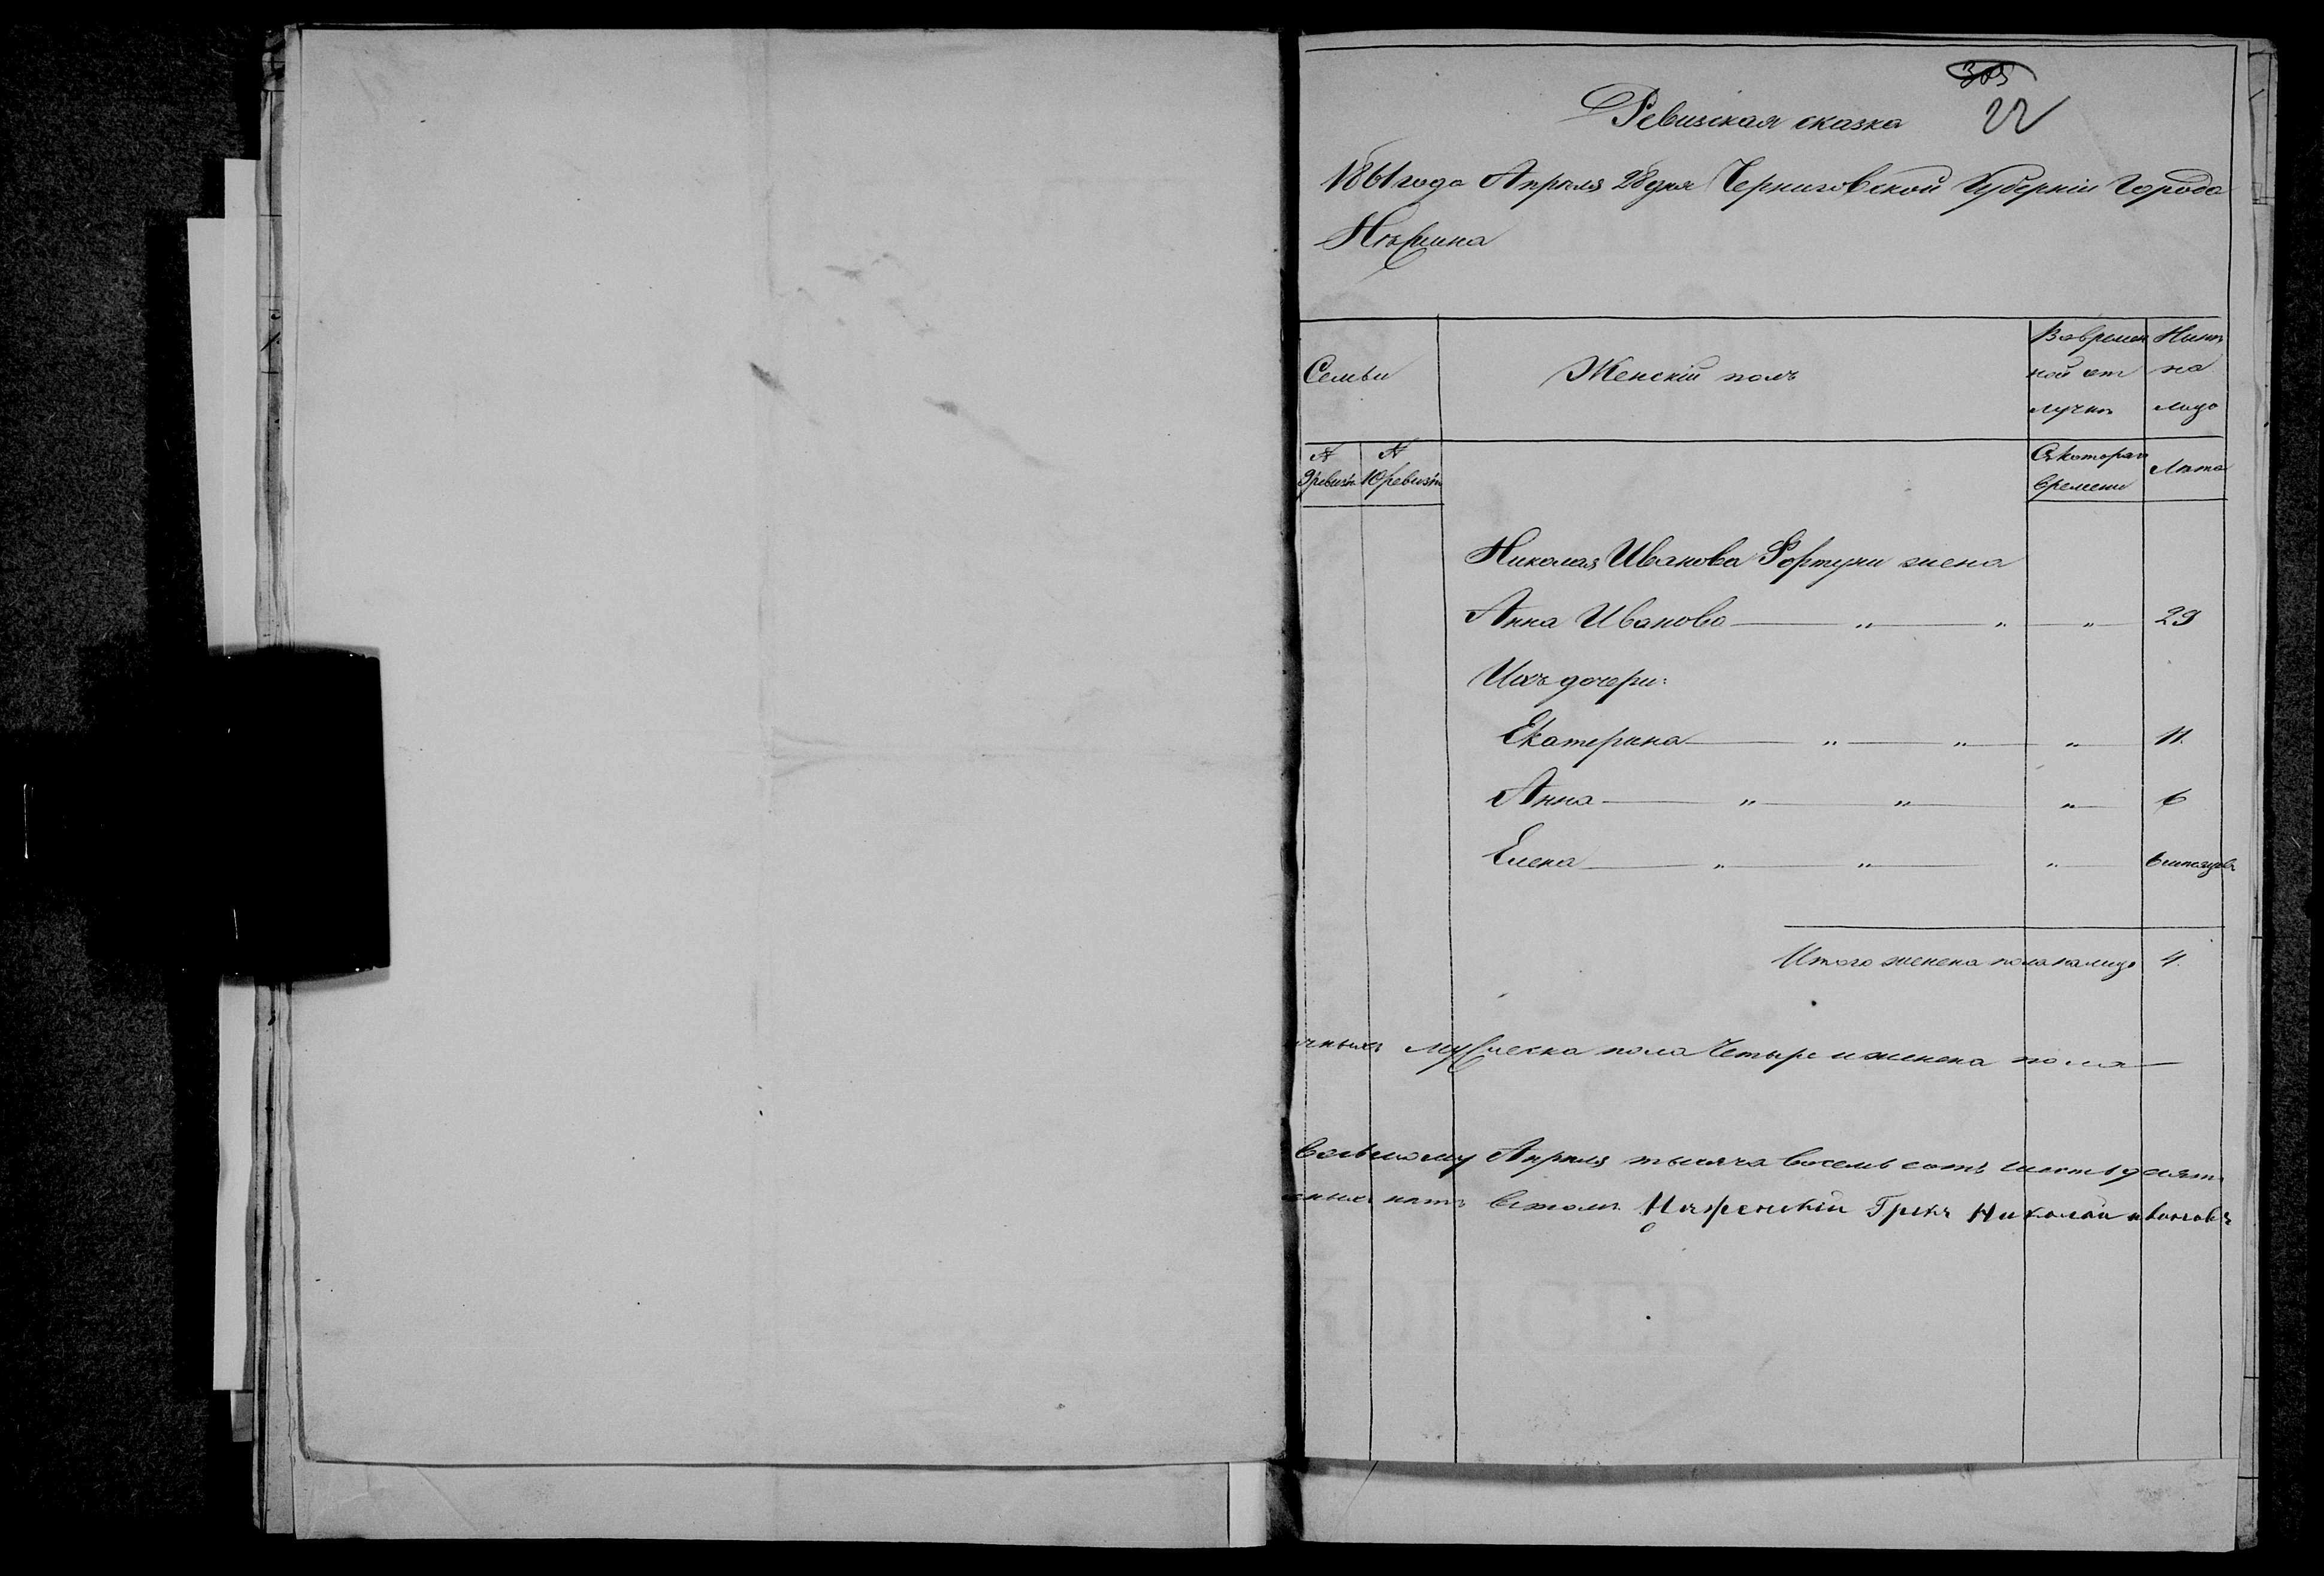 305
22
Ревизская сказка
1861 года Апрѣля 28 дня Черниговской Губерніи Города
Нѣжина
Семьи
Женскій полъ
Вовремен
ной от
лучкѣ
Нынѣ
на
лицо
№
9 ревизіи
№
10 ревизіи
Съкотораго
времени
Лѣта
Николая Иванова Фортуни жена
Анна Иванова — " — " — " — 29
Ихъ дочери:
Екатерина — " — " — " — 11.
Анна — " — " — " — 6
Елена — " — " — " — 6 мѣсяцевъ
Итого женска пола налицо 4.
чныхъ мужеска пола Четыре и женска пола —
восьмому Апрѣля тысяча восемь сотъ шестьдесят
нныхъ нѣтъ Вътомъ Нѣженскій Грекъ Николай ивановъ